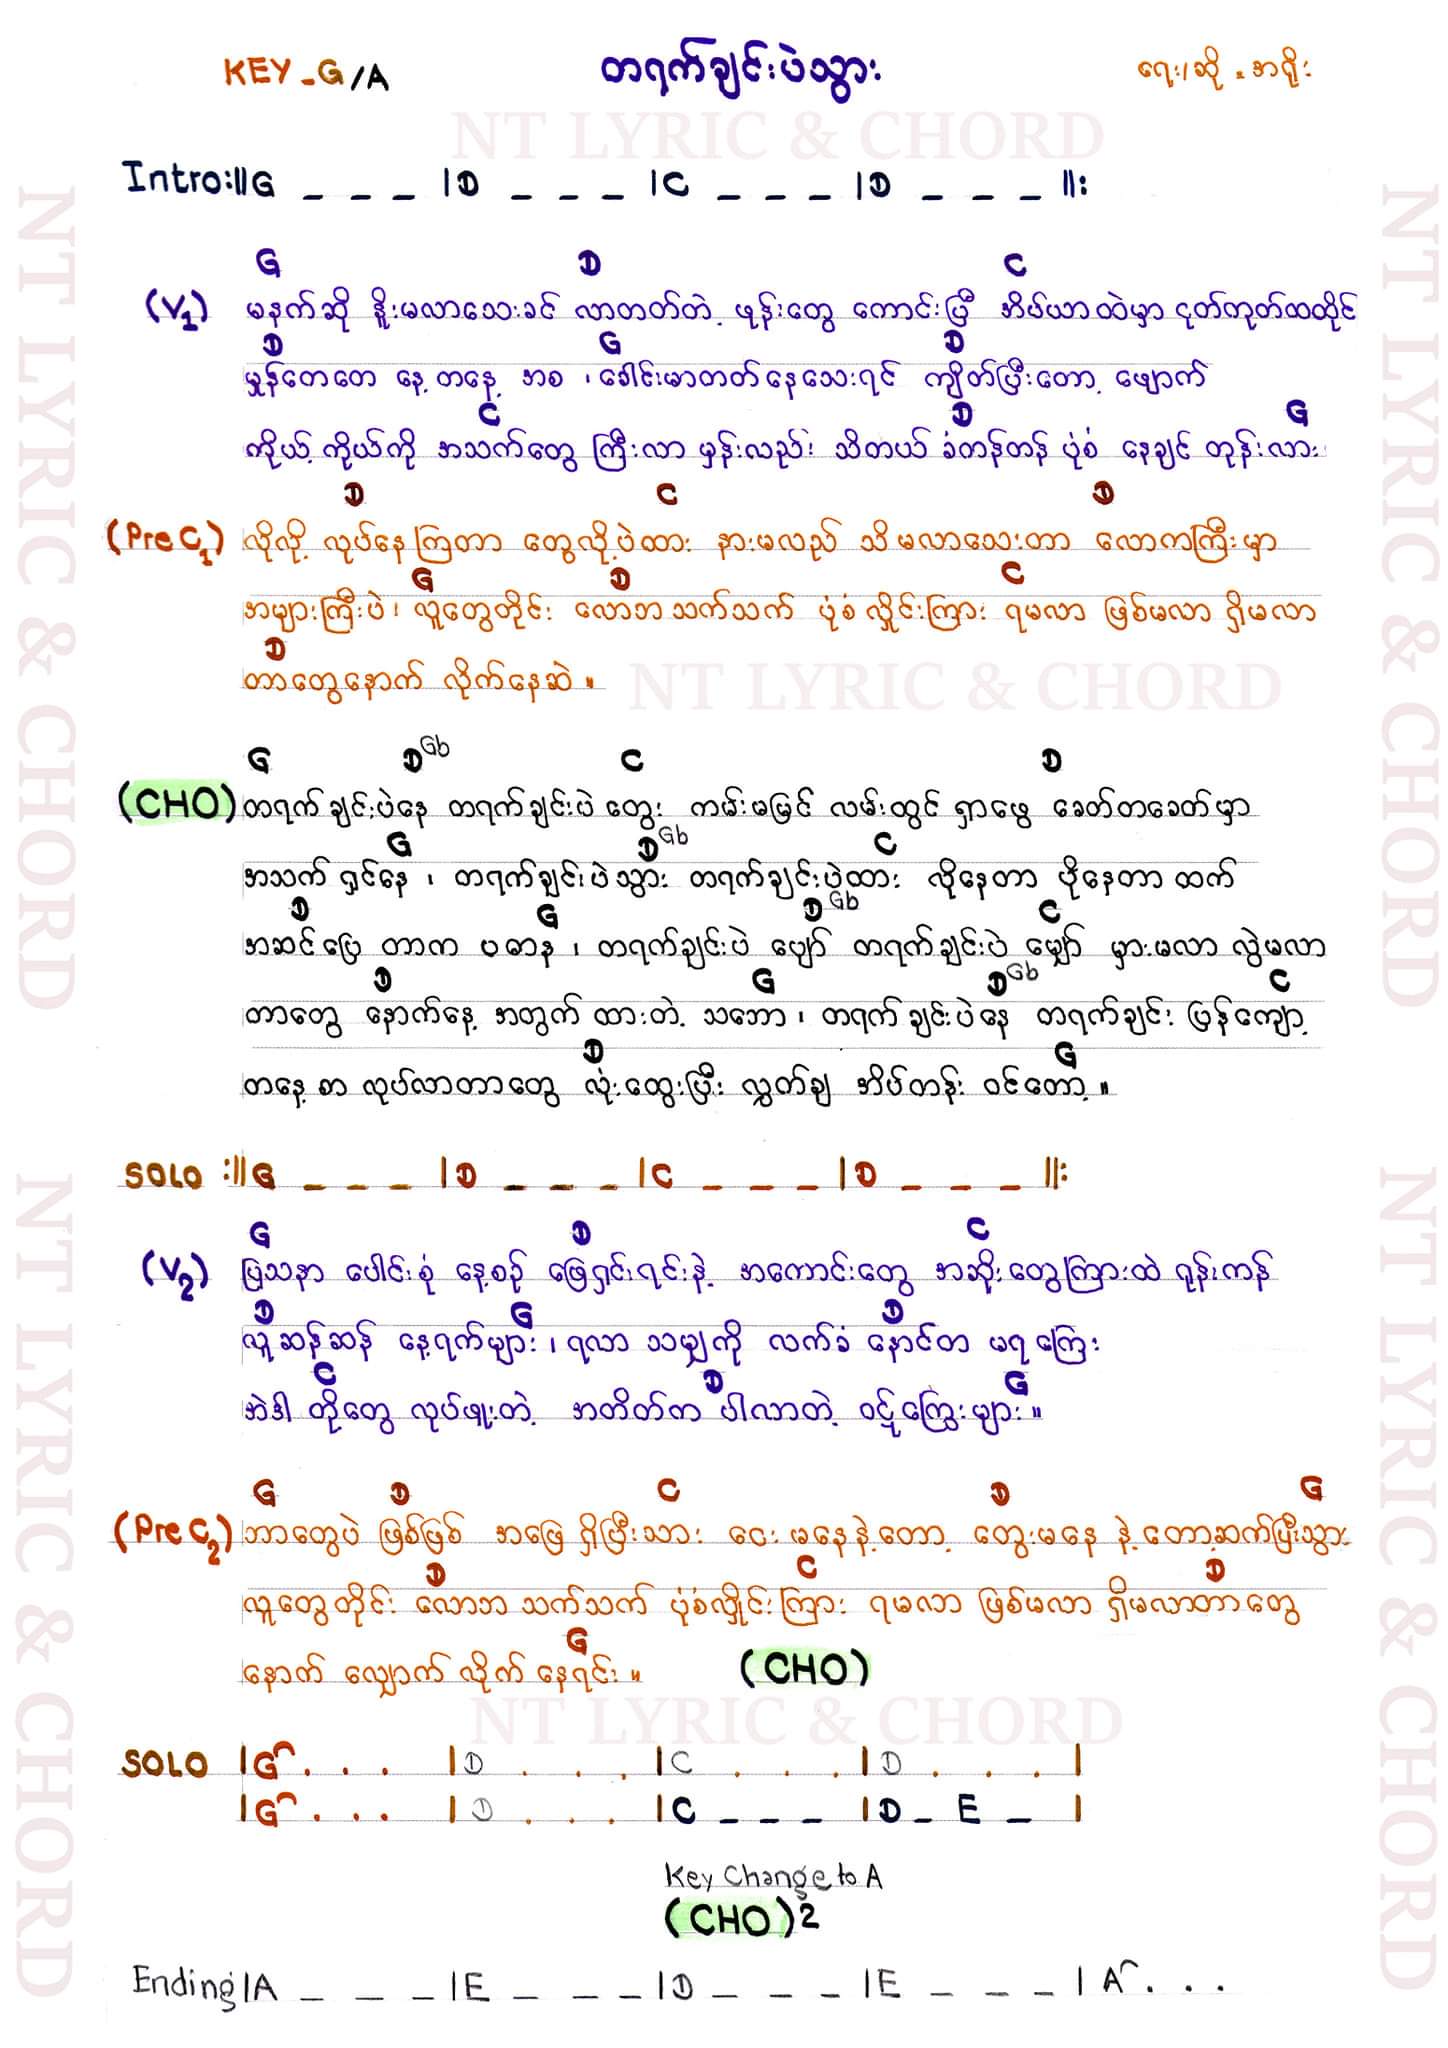 KEY - G/A
တရက်ချင်းပဲသွား
ရေး/ဆို - အရိုး
NT LYRIC & CHORD
Intro:||G _ _ _ |D _ _ _ |C _ _ _ |D _ _ _ ||:
G D C
(V1) မနက်ဆို နိုးမလာသေးခင် လာတတ်တဲ့ ဖုန်းတွေ ကောင်းပြီ အိပ်ယာထဲမှာ ငုတ်ကုတ်ထထိုင်
D G D
မှုန်တေတေ နေ့တနေ့ အစ ၊ ခေါင်းမာတတ်နေသေးရင် ကျိတ်ပြီးတော့ ဖျောက်
C D G
ကိုယ့် ကိုယ်ကို အသက်တွေ ကြီးလာ မှန်းလည်း သိတယ် ခံကန်တန် ပုံစံ နေချင် တုန်းလား
D C D
(Pre C1) လိုလို့ လုပ်နေကြတာ တွေလို့ပဲထား နားမလည် သိမလာသေးတာ လောကကြီးမှာ
G D C
အများကြီးပဲ ၊ လူတွေတိုင်း လောဘသက်သက် ပုံစံ လှိုင်းကြား ရမလာ ဖြစ်မလာ ရှိမလာ
D
တာတွေနောက် လိုက်နေဆဲ ။
NT LYRIC & CHORD
G D Gb C D
(CHO) တရက်ချင်းပဲနေ တရက်ချင်းပဲ တွေး ကမ်းမမြင် လမ်းထွင် ရှာဖွေ ခေတ်တခေတ်မှာ
G D Gb C
အသက်ရှင်နေ ၊ တရက်ချင်းပဲသွား တရက်ချင်းပဲထား လိုနေတာ ပိုနေတာ ထက်
D G D Gb C
အဆင်ပြေ တာက ပဓာန ၊ တရက်ချင်းပဲ ပျော် တရက်ချင်းပဲ မျှော် မှားမလာ လွဲမလာ
D G D Gb C
တာတွေ နောက်နေ့ အတွက် ထားတဲ့ သဘော ၊ တရက်ချင်းပဲနေ တရက်ချင်း ဖြန်ကျော့
D G
တနေ့စာ လုပ်လာတာတွေ လုံးထွေးပြီး လွှတ်ချ အိပ်တန်း ဝင်တော့ ။
SOLO :||G _ _ _ |D _ _ _ |C _ _ _ |D _ _ _ ||:
G D C
(V2) ပြသနာ ပေါင်းစုံ နေ့စဉ် ဖြေရှင်းရင်းနဲ့ အကောင်းတွေ အဆိုးတွေကြားထဲ ရုန်းကန်
D G D
လူဆန်ဆန် နေ့ရက်များ ၊ ရလာ သမျှကို လက်ခံ နောင်တ မရကြေး
C D G
အဲဒါ တို့တွေ လုပ်ဖူးတဲ့ အတိတ်က ပါလာတဲ့ ဝဋ်ကြွေးများ ။
G D C D G
(Pre C2) ဘာတွေပဲ ဖြစ်ဖြစ် အဖြေ ရှိပြီးသား ငေး မနေနဲ့တော့ တွေးမနေ နဲ့ တော့ဆက်ပြီးသွား
D C D
လူတွေတိုင်း လောဘ သက်သက် ပုံစံလှိုင်းကြား ရမလာ ဖြစ်မလာ ရှိမလာတာတွေ
G
နောက် လျှောက် လိုက် နေရင်း ။ (CHO)
NT LYRIC & CHORD
SOLO |G . . . |D . . . |C . . . |D . . . |
|G . . . |D . . . |C _ _ _ |D _ E _ |
Key Change to A
(CHO)2
Ending |A _ _ _ |E _ _ _ |D _ _ _ |E _ _ _ |A . . .
NT LYRIC & CHORD
NT LYRIC & CHORD
NT LYRIC & CHORD
NT LYRIC & CHORD